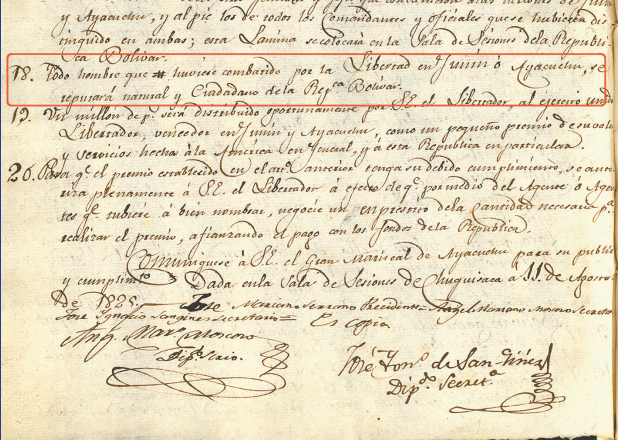 y Ayacucho, y al pie los de todos los Comandantes y oficiales que se hubieren dis
tinguido en ambas; esta Lamina se colocará en la Sala de Sesiones de la Republi
ca Bolivar.
18. Todo hombre que huviese combatido por la Libertad en Junin ó Ayacucho, se
reputará natural y Ciudadano de la Rep.ca Bolivar.
19. Un millon de p.s será distribuido oportunamente por S.E. el Libertador, al ejercito unido
Libertador, vencedor en Junin y Ayacucho, como un pequeño premio de su valor
y servicios hechos à la América en Jeneral, y à esta Republica en particular.
20. Para q.e el premio establecido en el art.o anterior tenga su debido cumplimiento, se auto
riza plenamente à S.E. el Libertador à efecto de q.e por medio del Agente ó Agen
tes q.e tubiere à bien nombrar, negocie un emprestito de la cantidad necesaria p.a
realizar el premio, afianzando el pago con los fondos de la Republica.
Comuniquese à S.E. el Gran Mariscal de Ayacucho para su public
y cumplim.to Dada en la Sala de Sesiones de Chuquisaca à 11 de Agosto
de 1825. José Mariano Serrano Presidente Angel Mariano Moscoso Secretar
José Ignacio Sanginés Secretario = Es copia
Ang. Mar.o Moscoso
Dip.o Srio.
José Ign.o de San-Ginés
Dip.o Secret.o